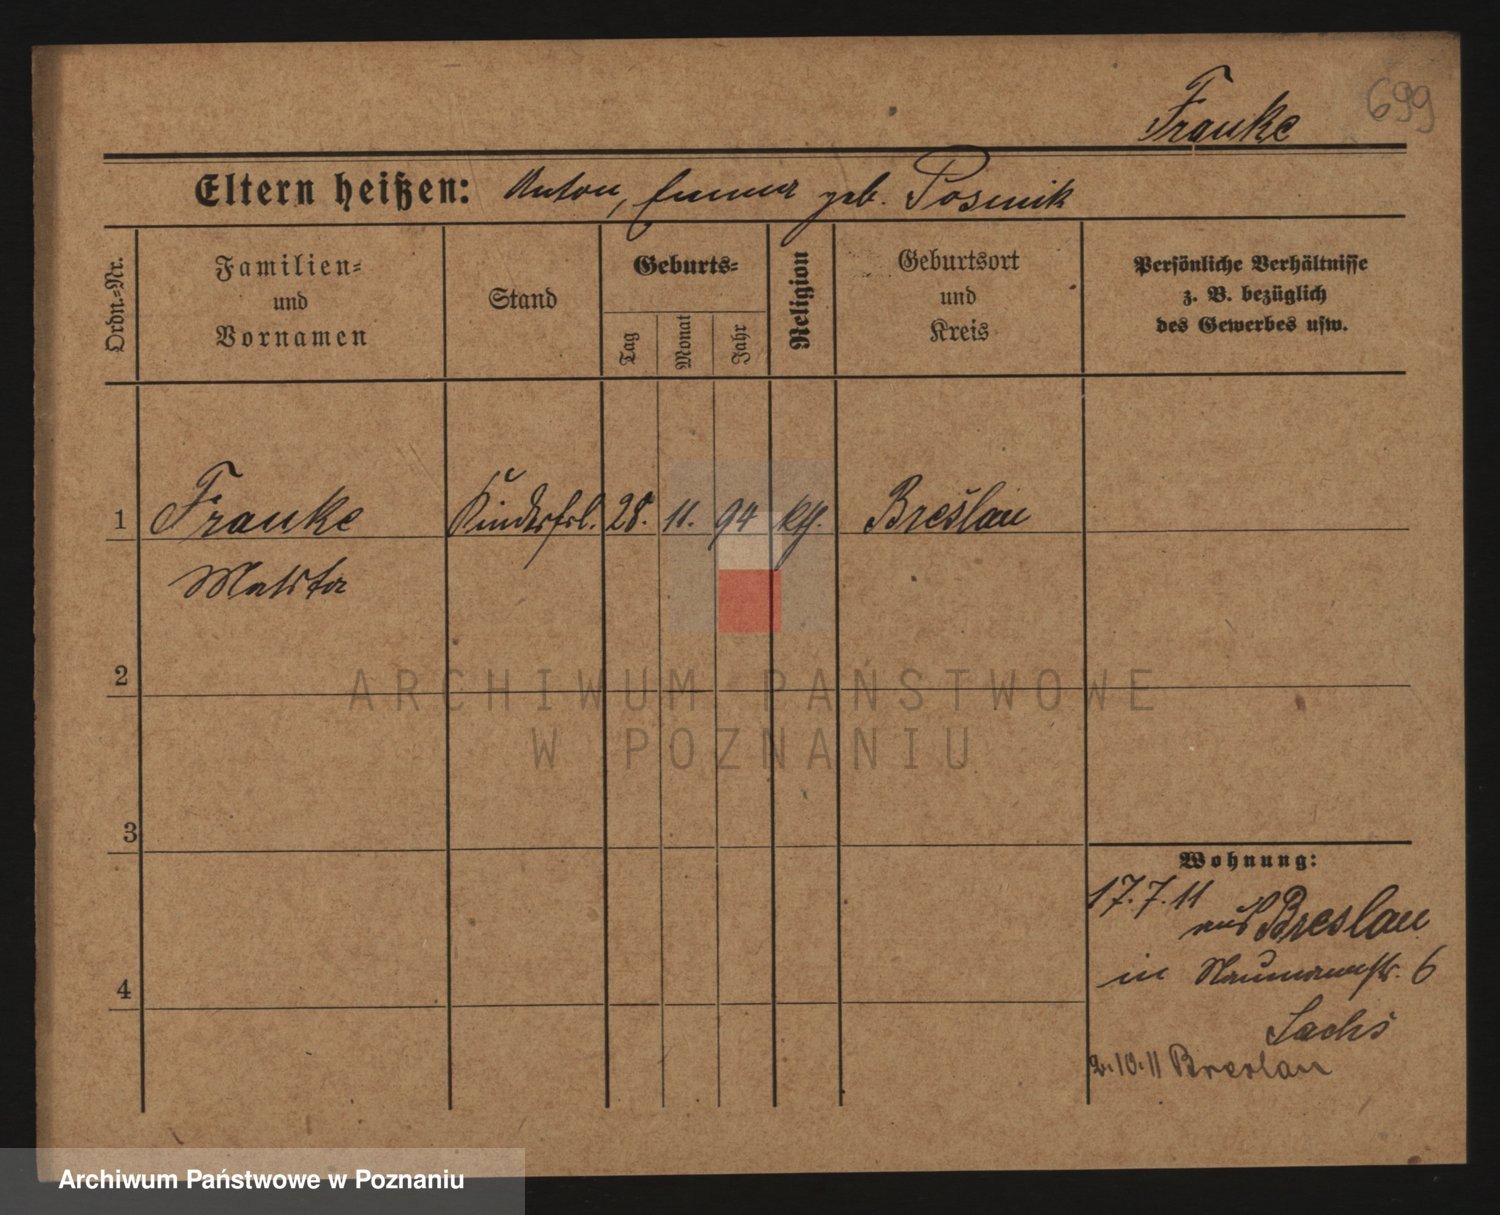 699
Franke
Eltern heißen: Anton, Emma geb. Posmik
Ordn.-Nr.
Familien- und Vornamen
Stand
Geburts-
Tag
Monat
Jahr
Religion
Geburtsort und Kreis
Persönliche Verhältnisse
z. B. bezüglich
des Gewerbes usw.
1 Franke Kinderfrl. 28. 11. 94 kth. Breslau
2
3
4
Wohnung:
17.7.11
aus Breslau
in Naumannstr. 6
Sachs
2.10.11 Breslau
ARCHIWUM PAŃSTWOWE
W POZNANIU
Archiwum Państwowe w Poznaniu